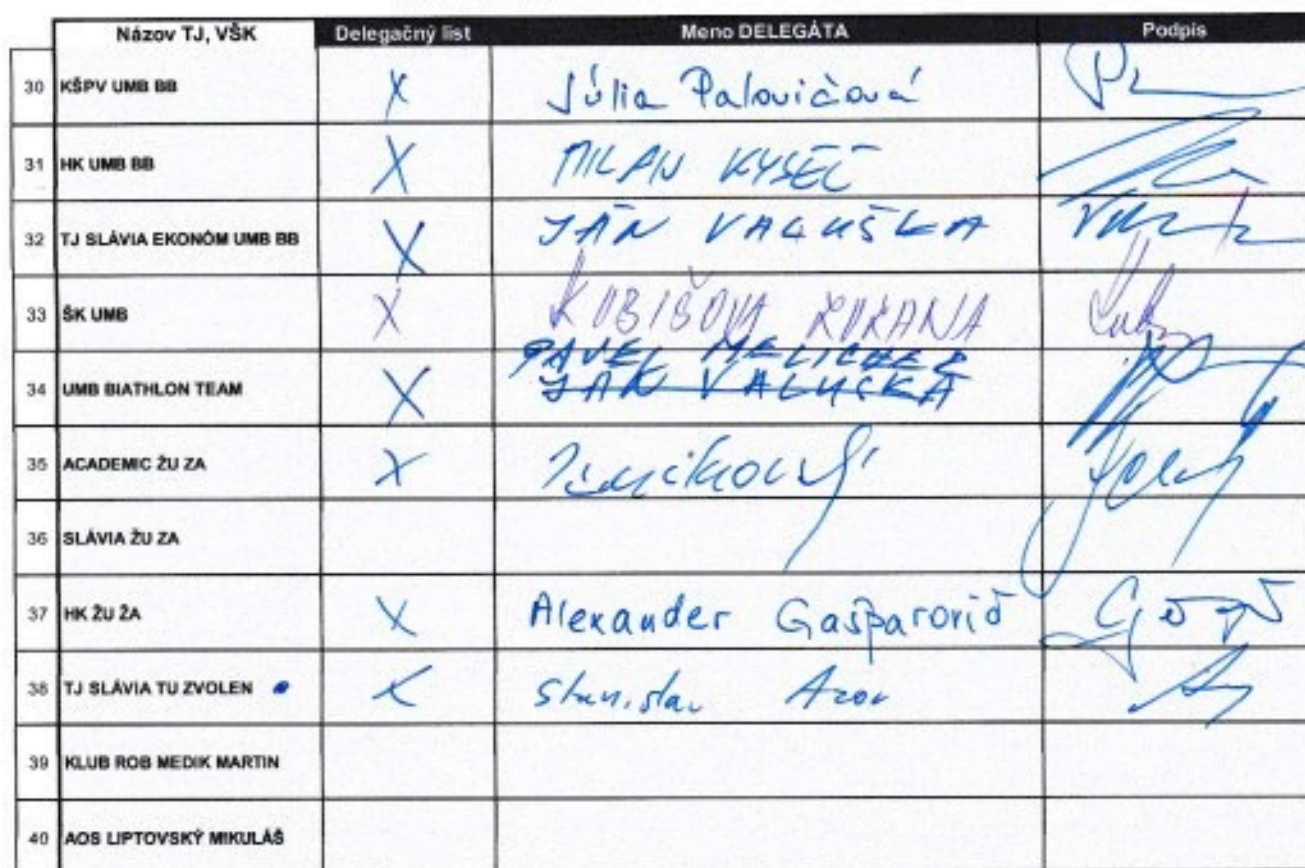 Názov TJ, VŠK Delegačný list Meno DELEGÁTA Podpis
30 KŠPV UMB BB X Júlia Palovičová
31 HK UMB BB X MILAN KYSEĽ
32 TJ SLÁVIA EKONÓM UMB BB X JÁN VALUŠKA
33 ŠK UMB X KUBIŠOVA ZUZANA
PAVEL MELICHER
34 UMB BIATHLON TEAM X JÁN VALUŠKA
35 ACADEMIC ŽU ZA X
36 SLÁVIA ŽU ZA
37 HK ŽU ŽA X Alexander Gašparovič
38 TJ SLÁVIA TU ZVOLEN X Stanislav Azor
39 KLUB ROB MEDIK MARTIN
40 AOS LIPTOVSKÝ MIKULÁŠ